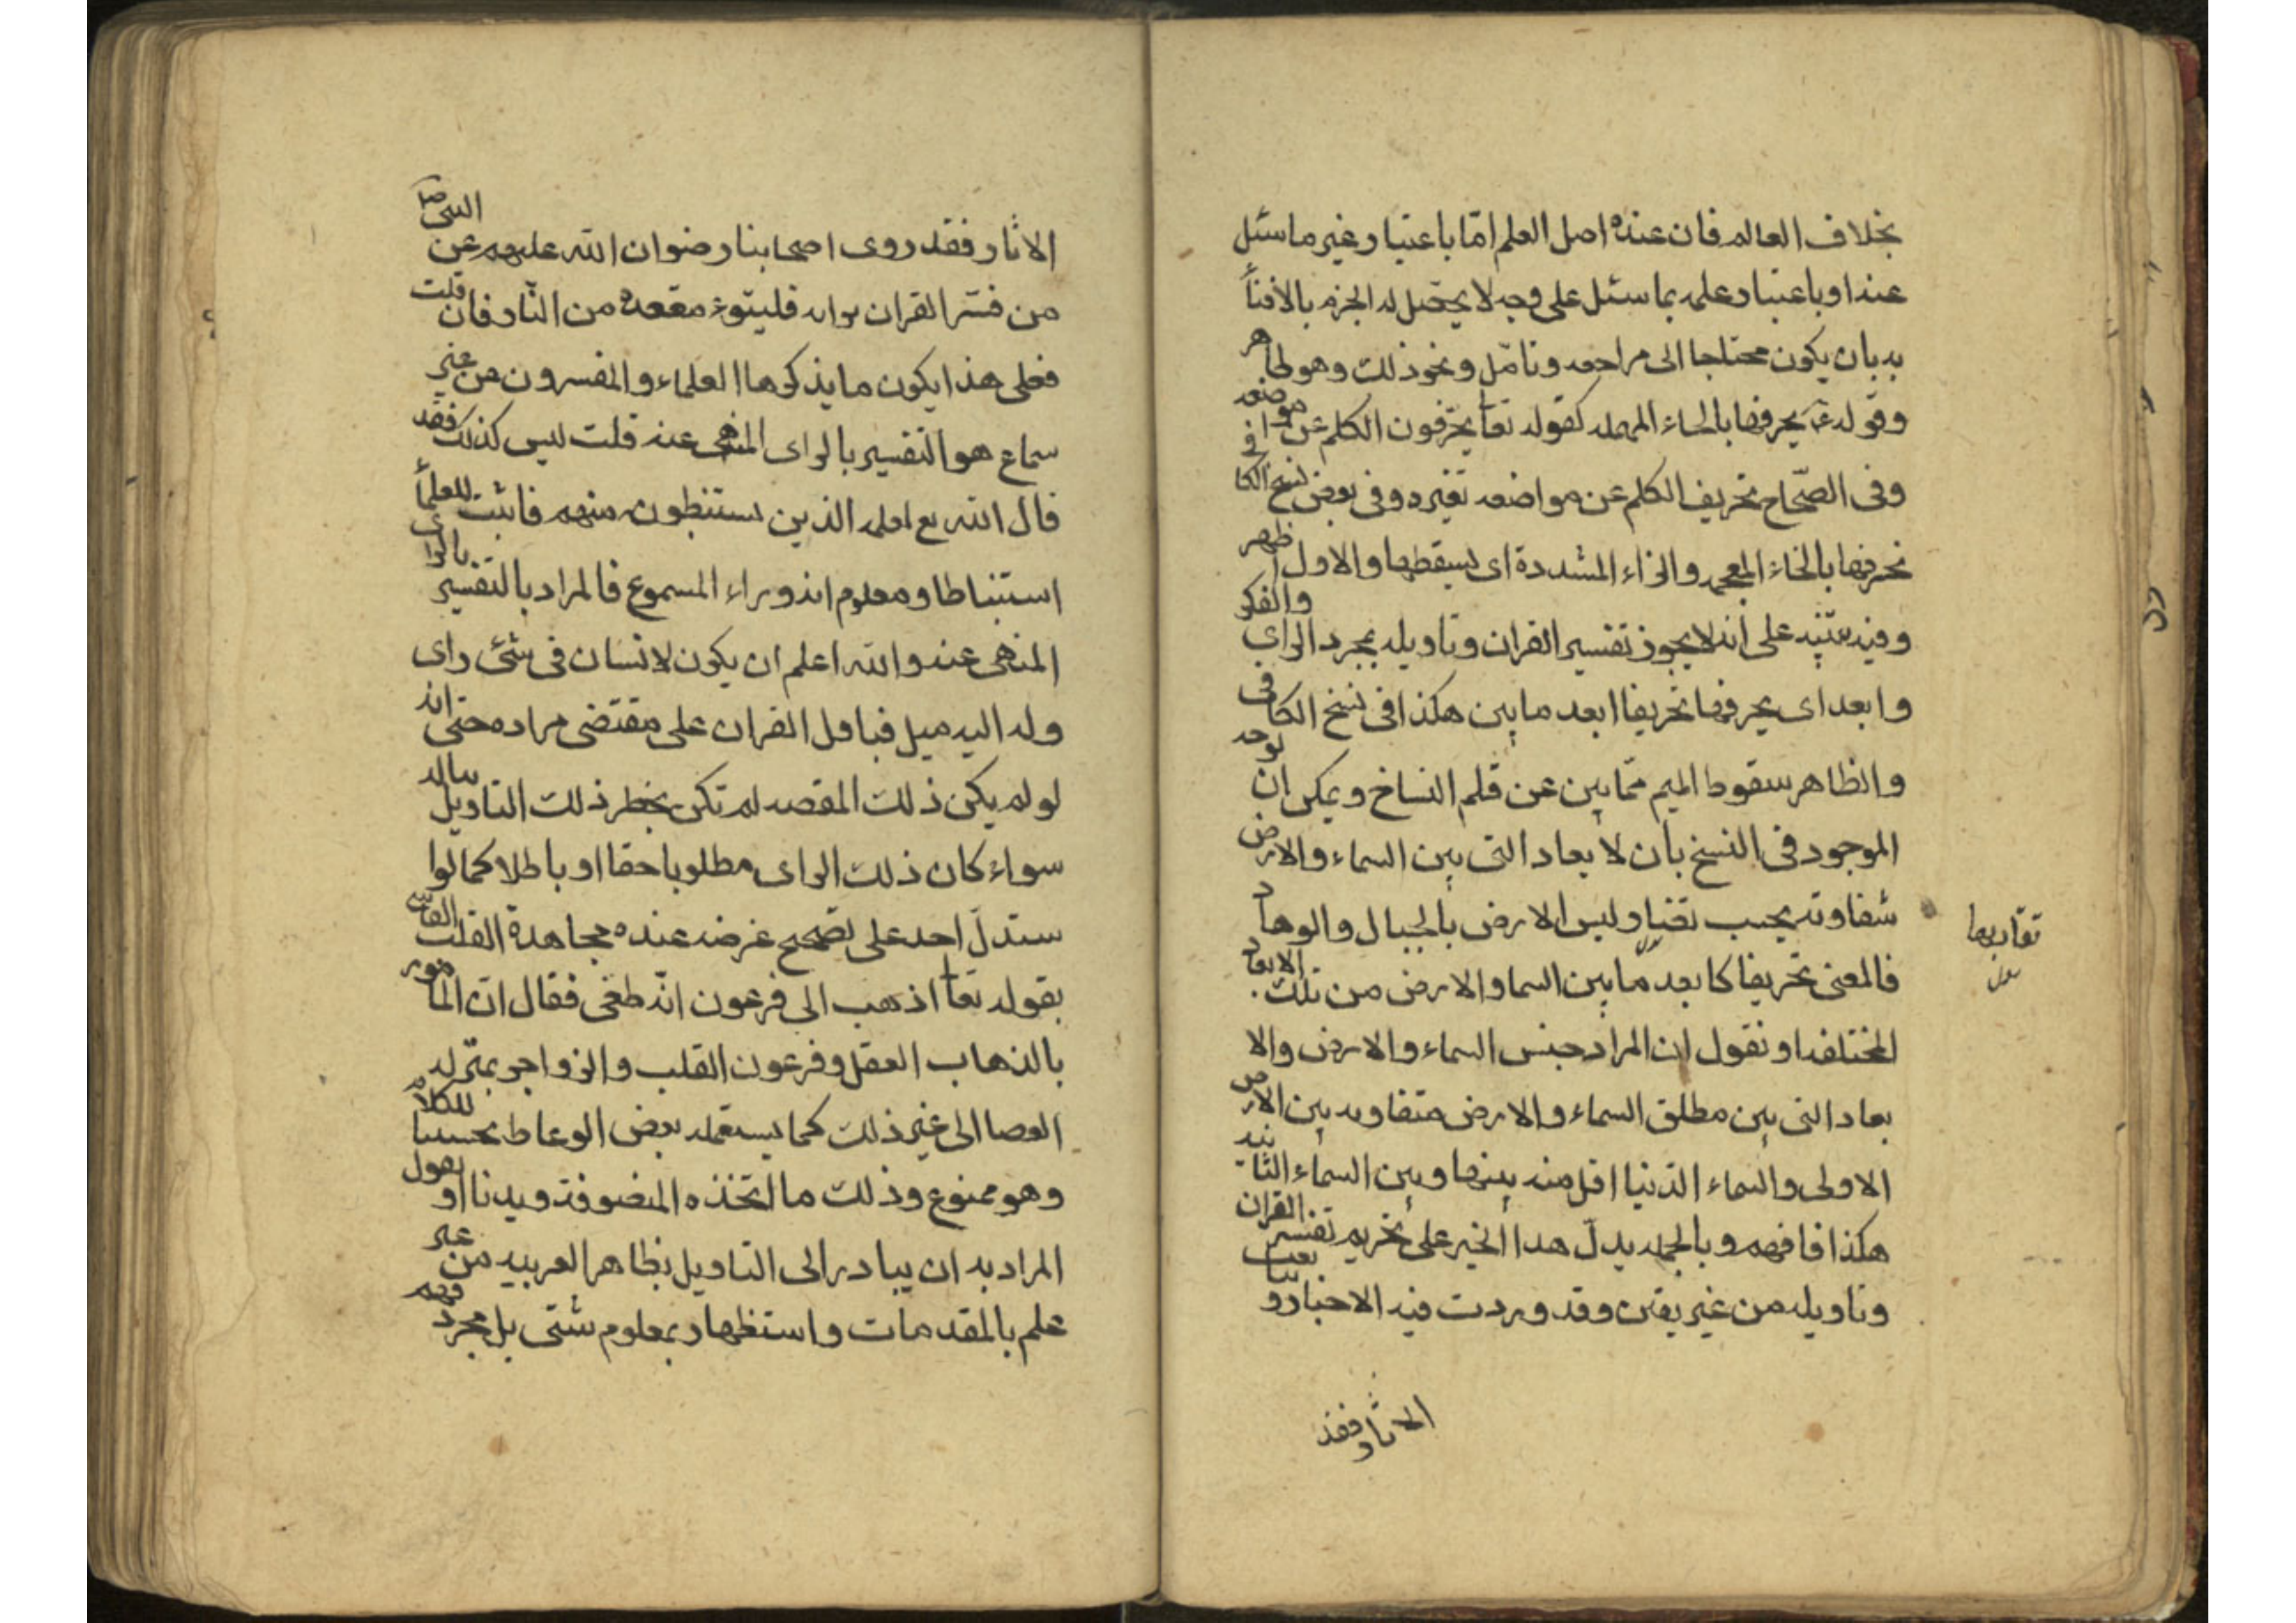 بخلاف العالم فان عنده اصل العلم امّا باعتبار غير ما سئل
عنه او باعتبار علمه بما سئل على وجه لا يحصل له الجزم بالافتأ
به بان يكون محتاجا الى مراجعه وتامّل ونحو ذلك وهو ظاهر
وقوله ع يحرفها بالحاء المهمله كقوله تعا يحرّفون الكلم عن مواضعه
وفى الصّحاح تحريف الكلم عن مواضعه تغيره وفى بعض نسخ الكافى
نخرفها بالخاء المعجمه والراء المشددة اى يسقطها والاول اظهر
وفيه تنبيه على انه لا يجوز تفسير القران وتاويله بمجرد الراى والفكر
وابعد اى يحرفها تحريفا ابعد ما بين هكذا فى نسخ الكافى
والظاهر سقوط الميم ممّا بين عن قلم النساخ ويمكن ان يوجه
الموجود فى النسخ بان لابعاد التى بين السماء والارض
متفاوته بحسب تفتياو ليس الارض بالجبال والوهاد
تقاربها
فالمعنى تحريفا كابعد ما بين السما والارض من تلك الابعاد
المختلفه او نقول ان المراد جنس السماء والارض والا
بعاد التى بين مطلق السماء والارض متفاوته بين الارض
الاولى والسماء الدنيا اقل منه بينها وبين السماء الثانيه
هكذا فافهم وبالجمله يدلّ هدا الخبر على تحريم تفسير القران
وتاويله من غير يقين وقد وردت فيه الاخبار و
الاثار فقد
الاثار فقد روى اصحابنا رضوان الله عليهم عن النبى ص
من فسّر القران برايه فليتبوء مقعده من النّار فان قلت
فعلى هذا يكون ما يذكرها العلماء والمفسرون من غير
سماع هو التفسير بالراى المنهى عنه قلت ليس كذلك فقد
قال الله تع لعلمه الذين يستنبطون منهم فاثبت للعلمأ
استنباطا ومعلوم انه وراء المسموع فالمراد بالتفسير بالراى
المنهى عنه والله اعلم ان يكون لانسان فى شئ راى
وله اليه ميل فياول القران على مقتضى مراده حتى انه
لو لم يكن ذلك المقصد لم تكن يخطر ذلك التاويل بباله
سواء كان ذلك الراى مطلوبا حقا او باطلا كما لو ا
ستدلّ احد على تصحيح غرضه عنده مجاهدة القلب القاسى
بقوله تعا اذهب الى فرعون انّه طغى فقال انّ المامور
بالذهاب العقل وفرعون القلب والزواجر بمنزله
العصا الى غير ذلك كما يستعمله بعض الوعاظ تحسينا للكلام
وهو ممنوع وذلك ما اتخذه المتصوفة ديدنا او يقول
المراد به ان يبادر الى التاويل بظاهر العربيه من غير
علم بالمقدمات واستظهار بعلوم شتى بل بمجرد فهم